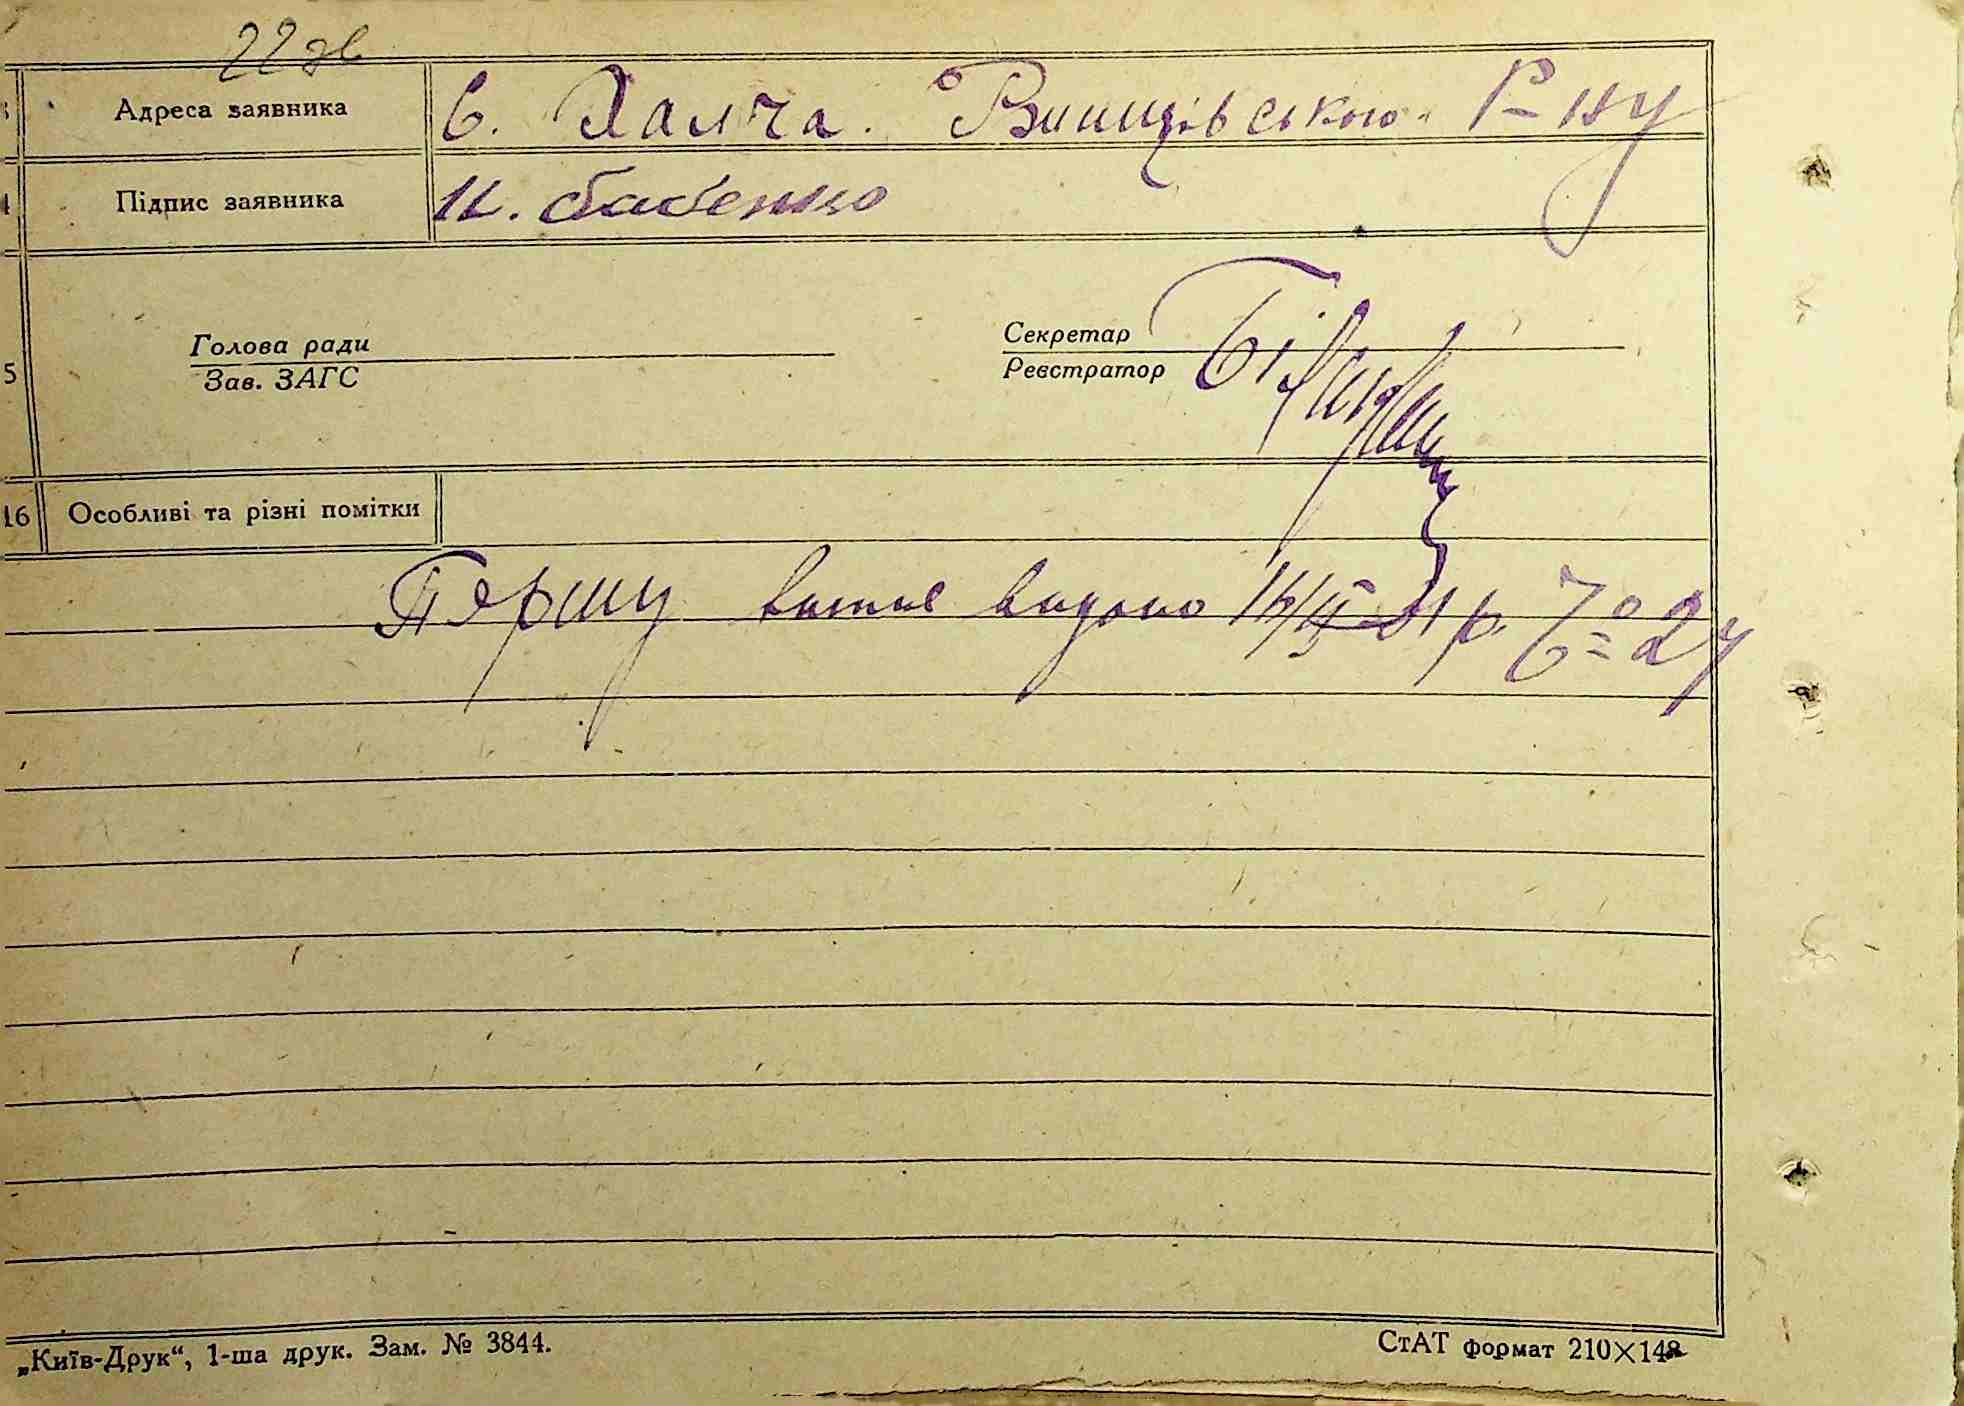 22 зв
Адреса заявника С. Халча. Ржищівського Р-ну
Підпис заявника Н. Бабенко
Голова ради
Зав. ЗАГС
Секретар
Реєстратор
16 Особливі та різні помітки
Першу видано р. № 24
„Київ-Друк“, 1-ша друк. Зам. № 3844.
СтАТ формат 210×148